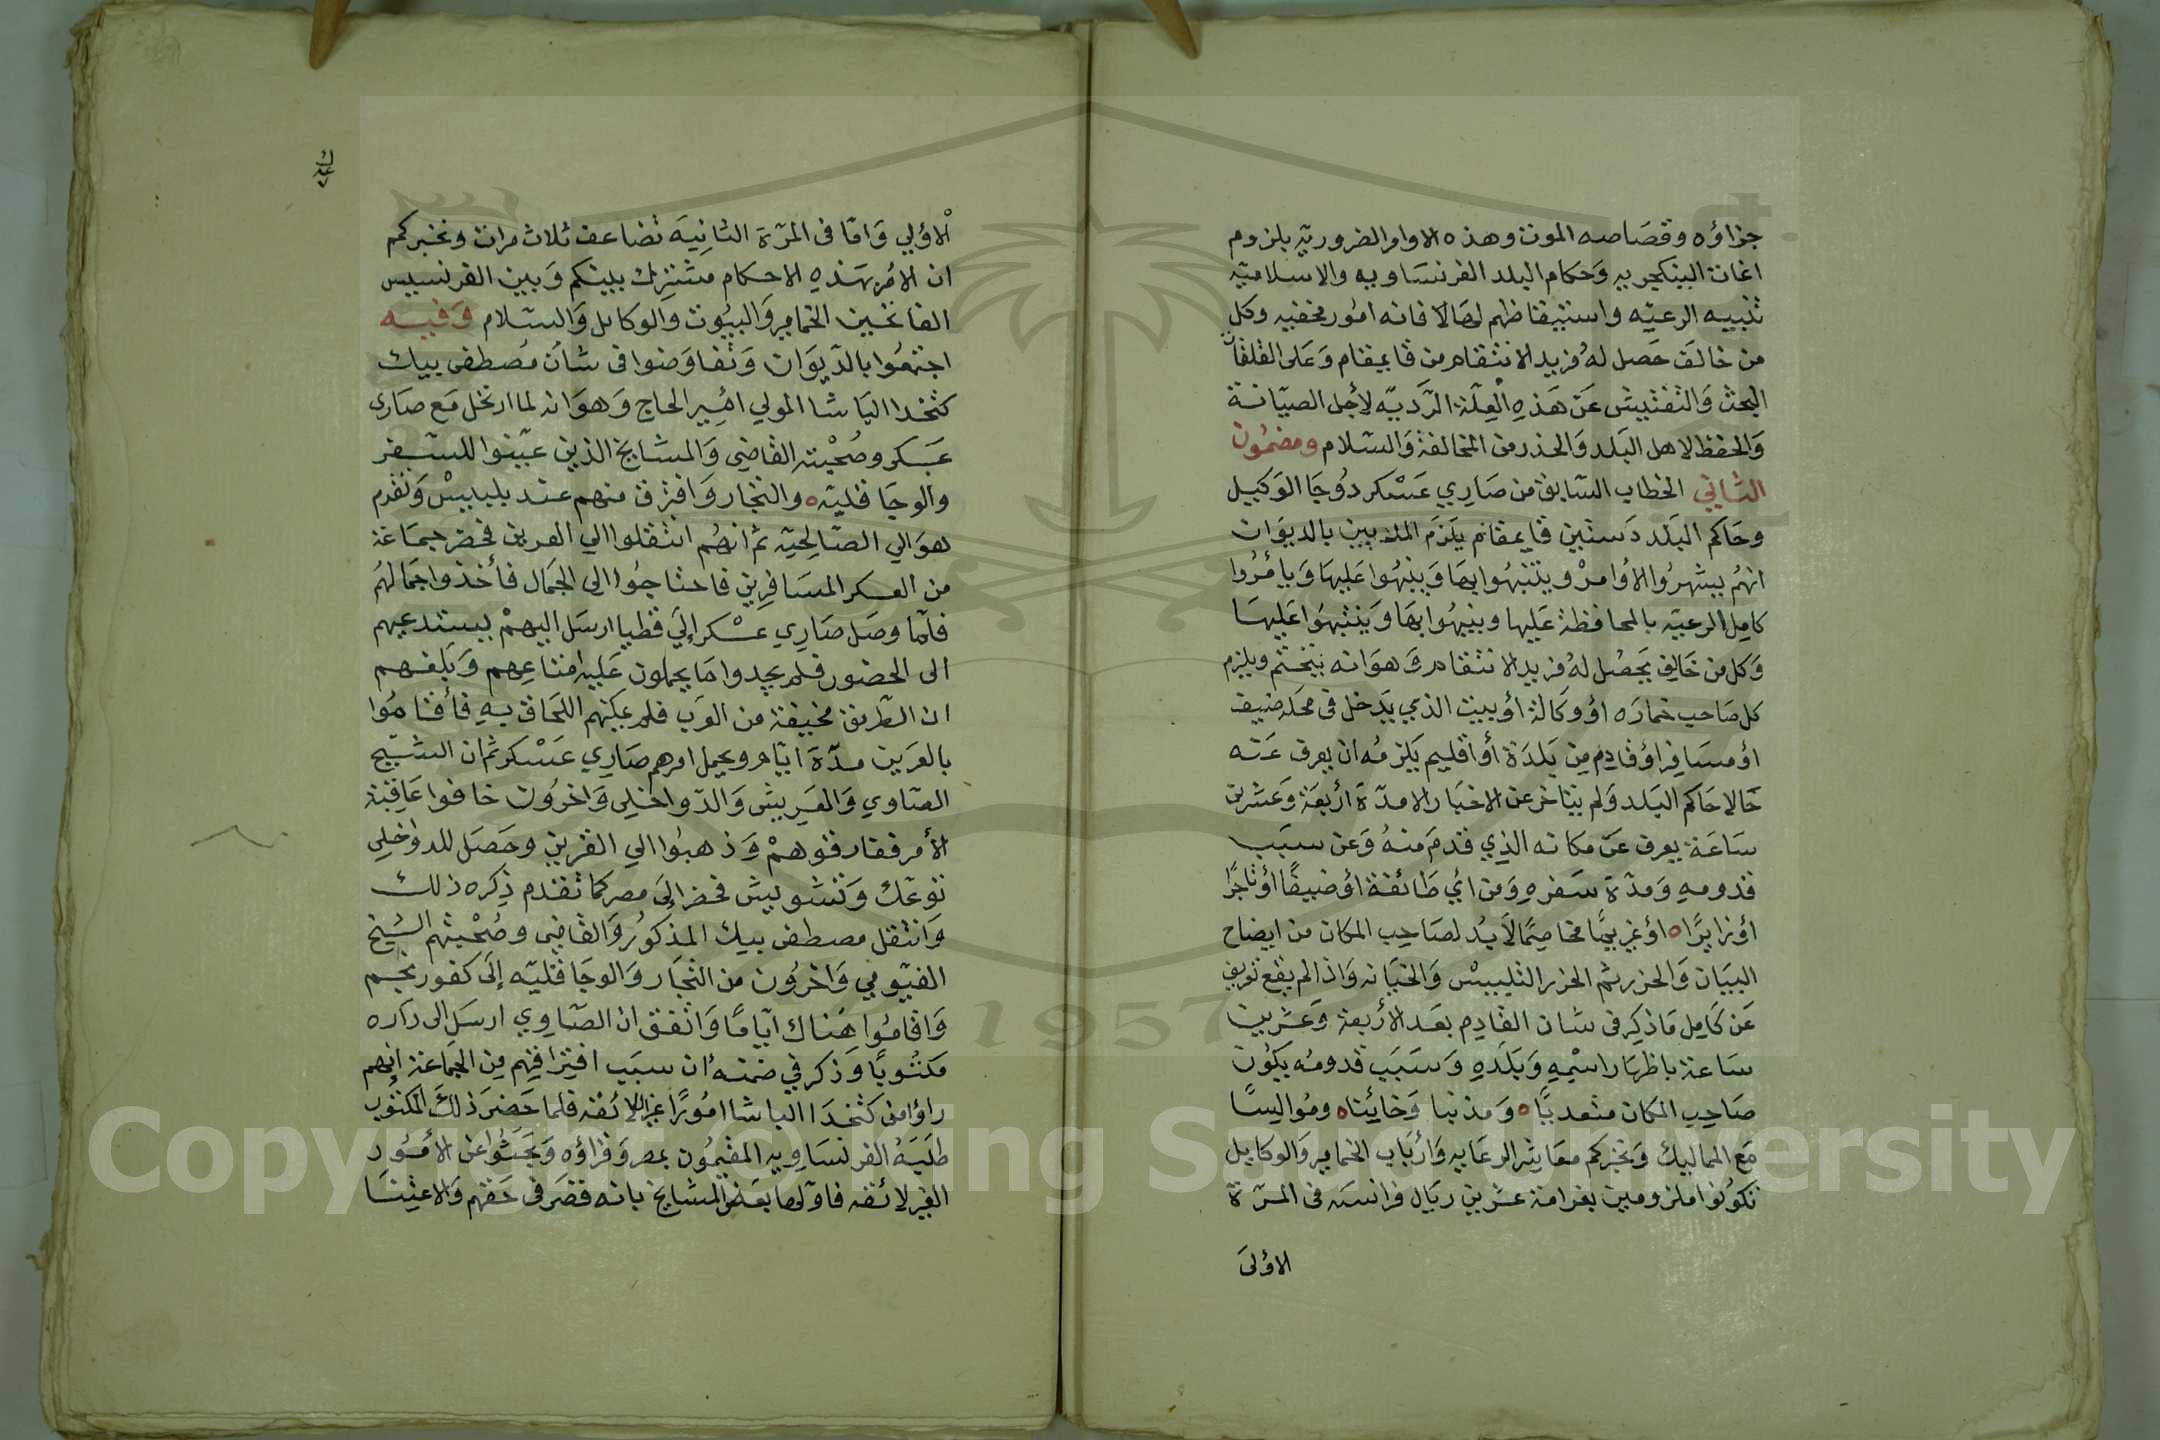 جزاؤه وقصاصه الموت وهذه الاوامر الضرورية يلزوم
اغات الينكجريه وحكام البلد الفرنساويه والاسلاميه
تنبيه الرعيه واستيقاظهم لها لا فانه امور مخفيه وكل
من خالف حصل له مزيد الانتقام من قايمقام وعلى القلقات
البحث والتفتيش عن هذه العلة الرديه لاجل الصيانة
والحفظ لاهل البلد والحذر من المخالفة والسلام ومضمون
الثاني الخطاب السابق من صاري عسكر دوجا الوكيل
وحاكم البلد دستين قايمقام يلزم المدبين بالديوان
انهم يشهروا الاوامر وينتبهوا بها وينبهوا عليها ويأمروا
كامل الرعيه بالمحافظة عليها وينبهوا بها وينتبهوا عليها
وكل من خالف يحصل له مزيد الانتقام وهو انه يتحتم ويلزم
كل صاحب خماره اؤ وكالة اؤ بيت الذي يدخل في محله ضيف
اؤ مسافر اؤ قادم من بلدة أو اقليم يلزمه ان يعرف عنه
حالا حاكم البلد ولم يتاخر عن الاخبار الا مدة أربعة وعشرين
ساعة يعرف عن مكانه الذي قدم منه وعن سبب
قدومه ومدة سفره ومن اي طائفة اؤ ضيفًا اؤ تاجرًا
اؤ زايرًا ه اؤ غريبًا مخاصمًا لا بد لصاحب المكان من ايضاح
البيان والحزر ثم الحزر التلبيس والخيانه واذا لم يقع تعريف
عن كامل ما ذكر في شان القادم بعد الأربعة وعشرين
ساعة باظهار اسمه وبلده وسبب قدومه يكون
صاحب المكان متعديًا ه ومذنبا وخايئنا ه ومواليسًا
مع المماليك ونخبركم معاشر الرعايه وأرباب الخمامير والوكايل
تكونوا ملزومين بغرامة عشرين ريال فرانسه في المرة
الاؤلى
الاؤلي واما في المرة الثانية تضاعف ثلاث مرات ونخبركم
ان الامر بهذه الاحكام مشترك بينكم وبين الفرنسيس
الفاتحين الخمامير والبيوت والوكايل والسلام وفيه
اجتمعوا بالديوان وتفاوضوا في شأن مصطفى بيك
كتخدا الباشا المولي امير الحاج وهو انه لما ارتحل مع صاري
عسكر وصحبته القاضي والمشايخ الذين عينوا للسفر
والوجاقليه ه والتجار وافترق منهم عند بلبيس وتقدم
هو الي الصالحيه ثم انهم انتقلوا الي العرين فحضر جماعة
من العسكر المسافرين فاحتاجوا الى الجمال فأخذوا جمالهم
فلما وصل صاري عسكر إلى قطيا ارسل اليهم يستدعيهم
الى الحضور فلم يجدوا ما يحملون عليه امتاعهم وبلغهم
ان الطريق مخيفة من العرب فلم يمكنهم اللحاق به فأقاموا
بالعرين مدة ايام ويحيل امرهم صاري عسكر ثم ان الشيخ
الصاوي والعريشي والدواخلي واخرون خافوا عاقبة
الأمر ففارقوهم وذهبوا الي القرين وحصل للدواخلي
توعك وتشويش فحضر إلى مصر كما تقدم ذكره ذلك
وانتقل مصطفى بيك المذكور والقاضي وصحبتهم الشيخ
الفيومي واخرون من التجار والوجاقليه إلى كفور نجم
واقاموا هناك ايامًا واتفق ان الصاوي ارسل الى داره
مكتوبًا وذكر في ضمنه ان سبب افتراقهم من الجماعة انهم
راؤا من كتخدا الباشا امورًا غير لائقه فلما حضر ذلك المكتوب
طلبه الفرنساويه المقيمون بمصر وقراؤه وبحثوا عن الأمور
الغير لائقه فاولها بعض المشايخ بانه قصر في حقهم والاعتنا